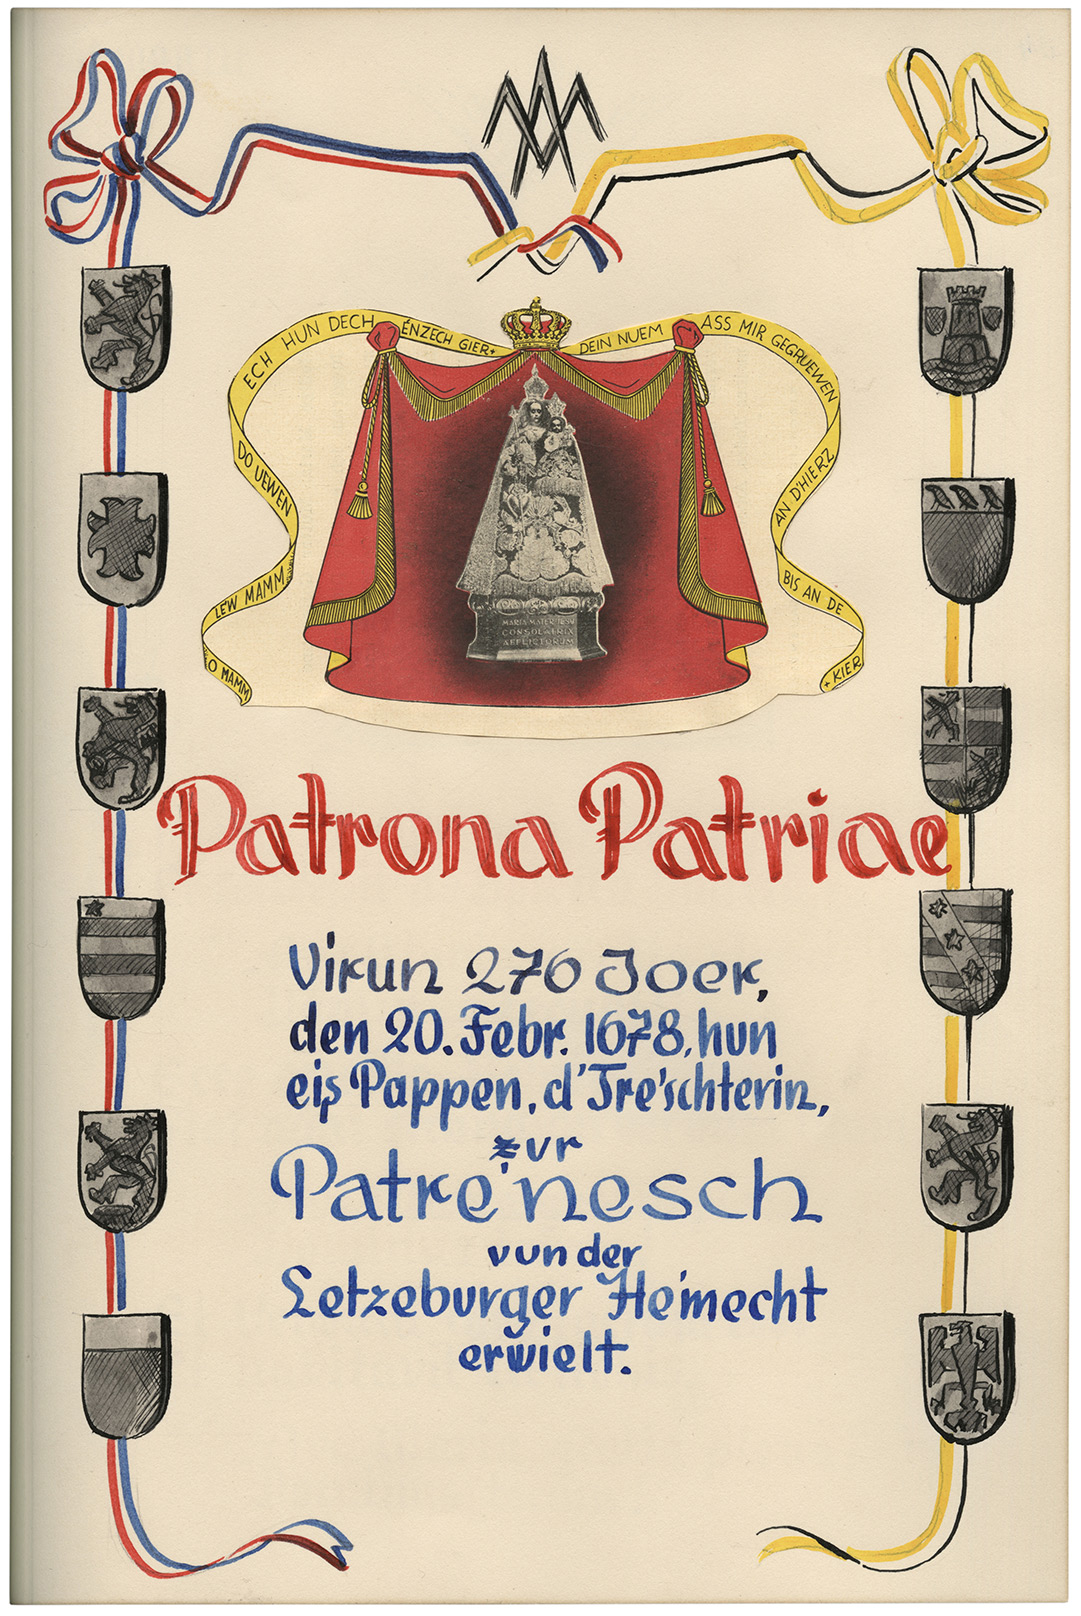 AM
O MAMM
LEW MAMM
DO UEWEN
ECH HUN DECH
ÉNZECH GIER+
DEIN NUEM
ASS MIR GEGRUEWEN
AN D'HIERZ
BIS AN DE
+ KIER
MARIA MATER JESU
CONSOLATRIX
AFFLICTORUM
Patrona Patriae
Virun 276 Joer,
den 20. Febr. 1678, hun
eis Pappen, d'Tre'schterin,
zur
Patre'nesch
vun der
Letzeburger He'mecht
erwielt.